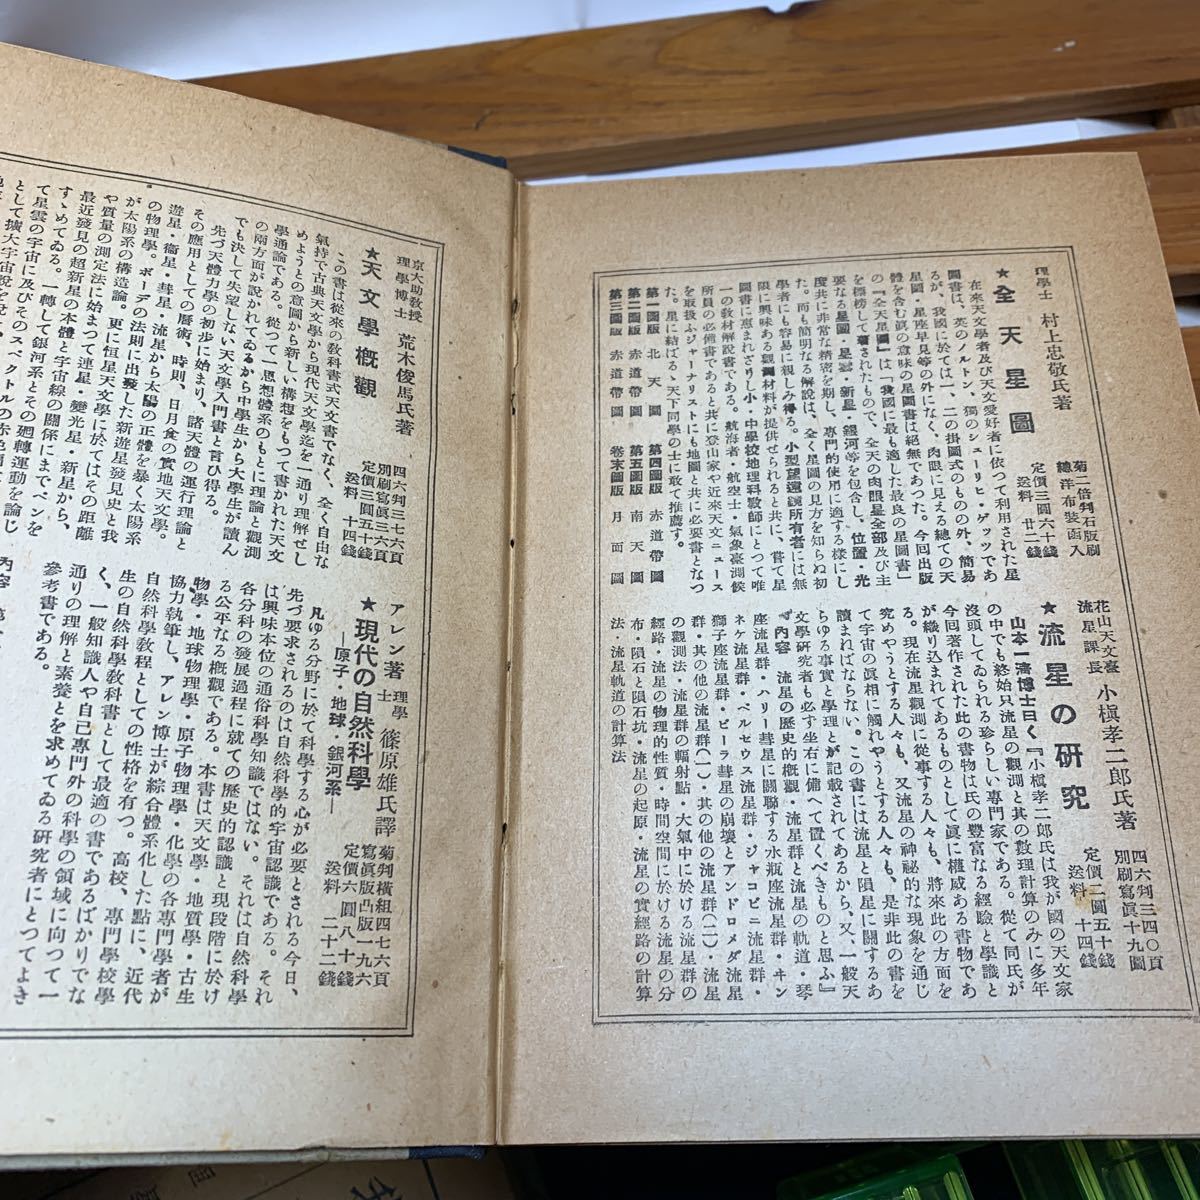 理學士 村上忠敬氏著
★全天星圖
菊二倍判石版刷
總洋布装函入
定價三圓六十錢
送料 廿二錢
在來天文學者及び天文愛好者に依つて利用された星
圖書は、英のノルトン、獨のシューリヒ・ゲッツであ
るが、我國に於ては、一、二の掛圖式のものの外、簡易
星圖・星座早見等の外になく、肉眼に見える總ての天
體を含む眞の意味の星圖書は絕無であつた。今回出版
の「全天星圖」は「我國に最も適した最良の星圖書」
を標榜して著されたもので、全天の肉眼星全部及び主
要なる星團・星雲・新星・銀河等を包含し、位置・光
度共に非常な精密を期し、專門的使用に適する樣にし
た。而も簡明なる解說は、全く星圖の見方を知らぬ初
學者にも容易に親しみ得る。小型望遠鏡所有者には無
限に興味ある觀測材料が提供せられると共に、嘗て星
圖書に惠まれざりし小・中學校地理科敎師にとつて唯
一の敎材解說書である。航海者・航空士・氣象臺測候
所員の必備書であると共に登山家や近來天文ニュース
を取扱ふジャーナリストにも地圖と共に必要書となつ
た。星に結ばるゝ天下同學の士に敢て推薦す。
第一圖版 北天圖 第四圖版 赤道帶圖
第二圖版 赤道帶圖 第五圖版 南天圖
第三圖版 赤道帶圖 卷末圖版 月面圖
花山天文臺
流星課長 小槇孝二郎氏著
★流星の研究
四六判三四〇頁
別刷寫眞十九圖
定價二圓五十錢
送料 十四錢
山本一淸博士曰く『小槇孝二郎氏は我が國の天文家
の中でも終始只流星の觀測と其の數理計算のみに多年
沒頭してゐられる珍らしい專門家である。從て同氏が
今回著作された此の書物は氏の豐富なる經驗と學識と
が織り込まれてあるものとして眞に權威ある書物であ
る。現在流星觀測に從事する人々も、將來此の方面を
究めやうとする人々も、又流星の神秘的な現象を通じ
て宇宙の眞相に觸れやうとする人々も、是非此の書を
讀まねばならない。この書には流星と隕星に關するあ
らゆる事實と學理とが記載されてあるから、又、一般天
文學硏究者も必ず坐右に備へて置くべきものと思ふ』
內容 流星の歷史的槪觀・流星群と流星の軌道・琴
座流星群・ハリー彗星に關聯する水瓶座流星群・ヰン
ネケ流星群・ペルセウス流星群・ジャコビニ流星群・
獅子座流星群・ビーラ彗星の崩壞とアンドロメダ流星
群・其の他の流星群(一)・其の他の流星群(二)・流星
の觀測法・流星群の輻射點・大氣中に於ける流星群の
經路・流星の物理的性質・時間空間に於ける流星の分
布・隕石と隕石坑・流星の起原・流星の實經路の計算
法・流星軌道の計算法
京大助敎授
理學博士 荒木俊馬氏著
★天文學槪觀
四六判三七六頁
別刷寫眞三六頁
定價三圓五十錢
送料 十四錢
この書は從來の敎科書式天文書でなく、全く自由な
氣持で古典天文學から現代天文學迄を一通り理解せし
めようとの意圖から新しい構想をもつて書かれた天文
學通論である。從つて一思想體系のもとに理論と觀測
の兩方面が說かれてゐるから中學生から大學生が讀ん
でも決して失望しない天文學入門書と言ひ得る。
先づ天體力學の初步に始まり、諸天體の運行理論と
その應用としての曆術、時刻、日月食の實地天文學。
遊星・衞星・彗星・流星から太陽の正體を暴く太陽系
の物理學。ボーデの法則に出發した新遊星發見史と我
が太陽系の構造論。更に恒星天文學に於てはその距離
や質量の測定法に始まつて連星・變光星・新星から、
最近發見の超新星の本體と宇宙線の關係にまでペンを
すゝめてゐる。一轉して銀河系とその廻轉運動を論じ
て星雲の宇宙に及びそのスペクトルの赤色
として擴大宇宙說を
アレン著 理學士 篠原雄氏譯
★現代の自然科學
―原子・地球・銀河系―
菊判橫組四七六頁
寫眞版凸版一九六
定價六圓八十錢
送料 二十二錢
凡ゆる分野に於て科學する心が必要とされる今日、
先づ要求されるのは自然科學的宇宙認識である。それ
は興味本位の通俗科學知識ではない。それは自然科學
各分科の發展過程に就ての歷史的認識と現段階に於け
る公平なる槪觀である。本書は天文學・地質學・古生
物學・地球物理學・原子物理學・化學の各專門學者が
協力執筆し、アレン博士が綜合體系化した點に、近代
自然科學敎程としての性格を有つ。高校、專門學校學
生の自然科學敎科書として最適の書であるばかりでな
く、一般知識人や自己專門外の科學の領域に向つて一
通りの理解と素養とを求めてゐる硏究者にとつてよき
參考書である。
內容